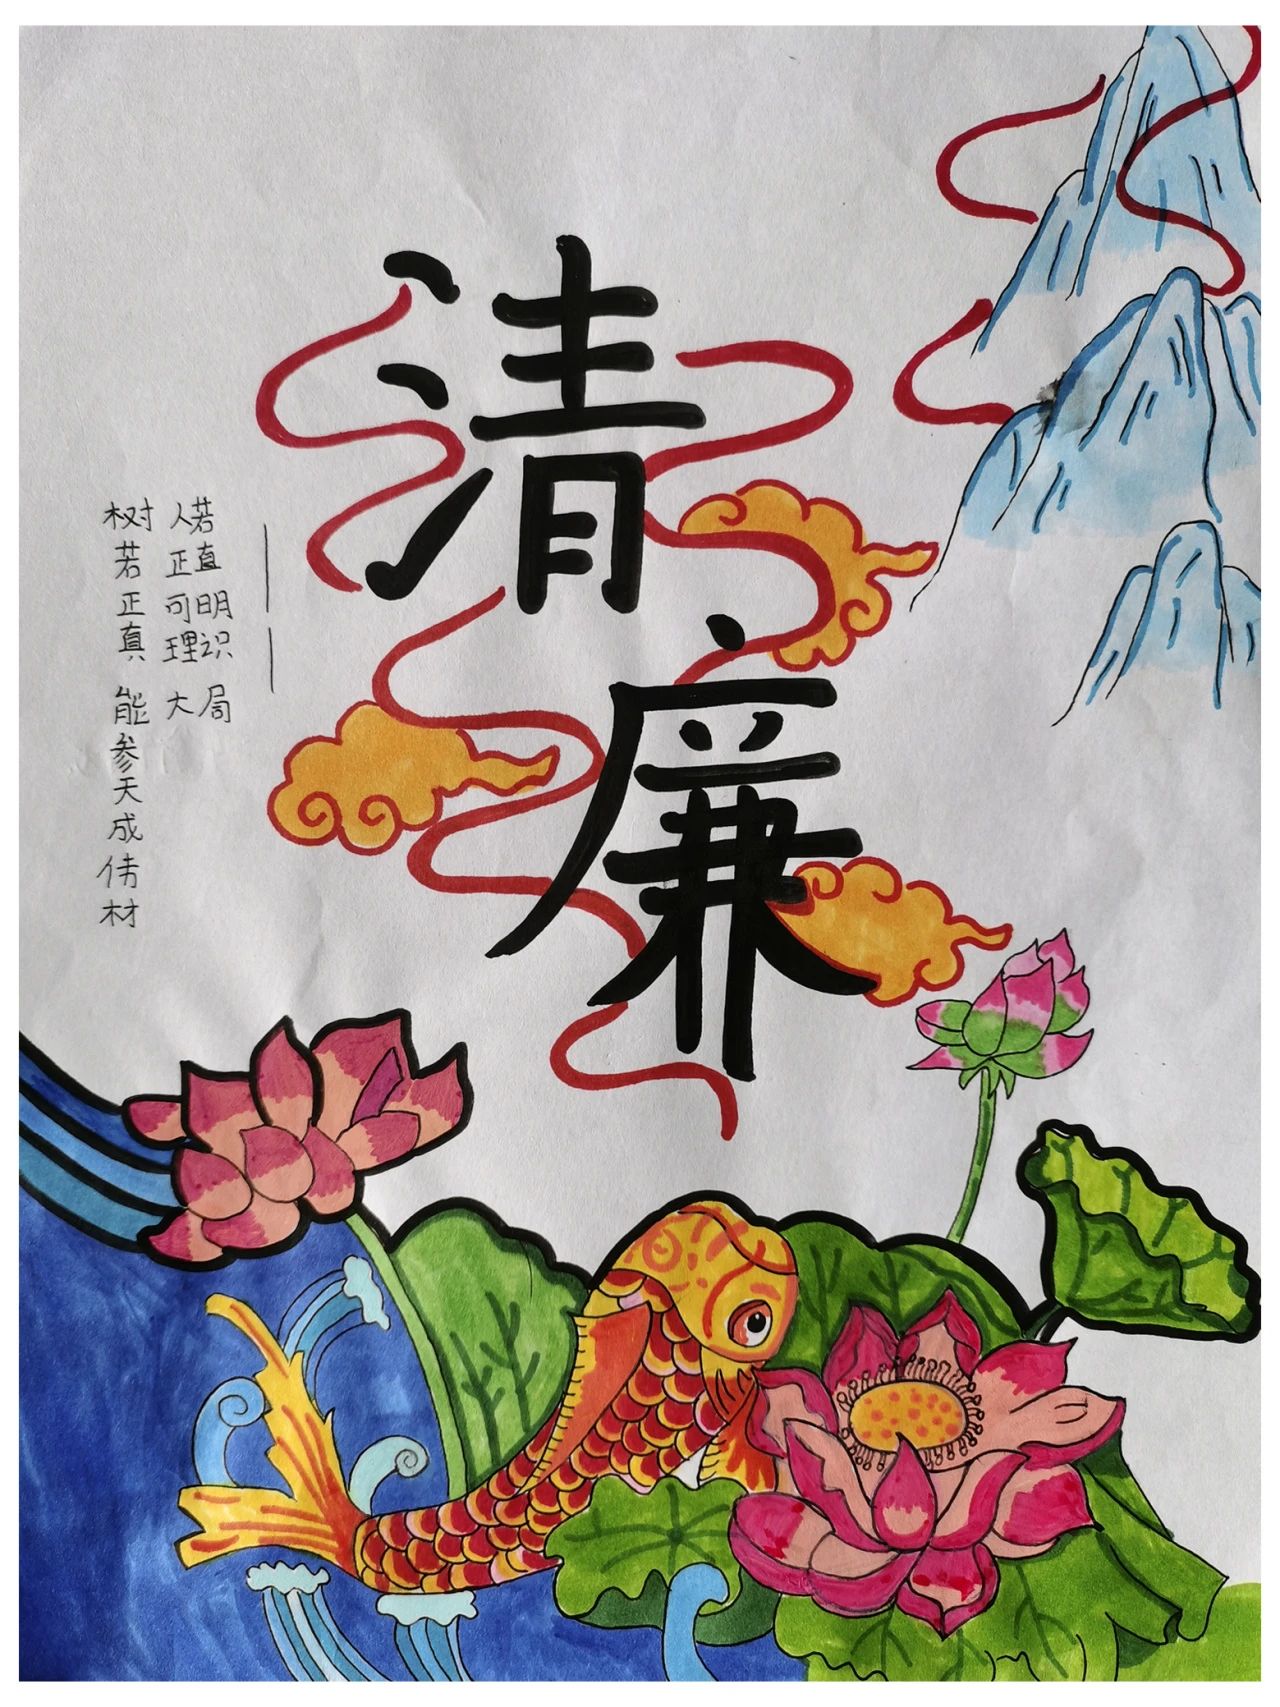 清廉
人若正直可明理识大局
树若正真能参天成伟材